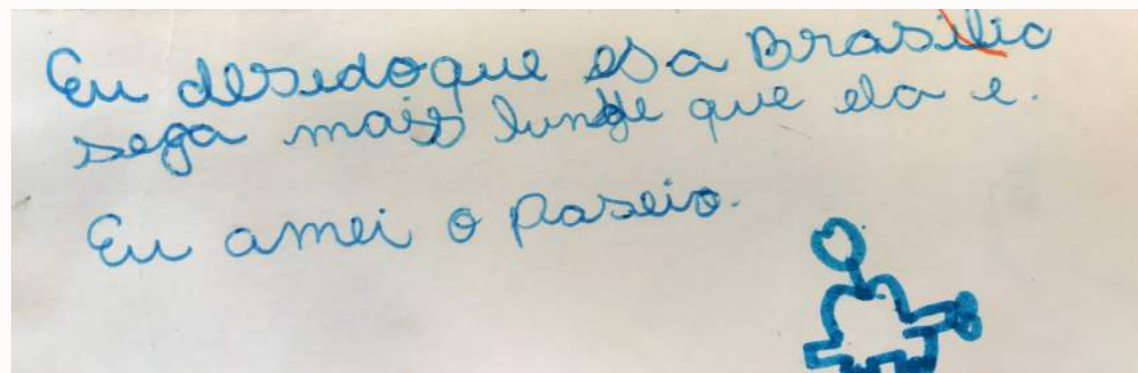 Eu desidoque esa Brasilia
sega mais lunge que ela e.
Eu amei o paseio.